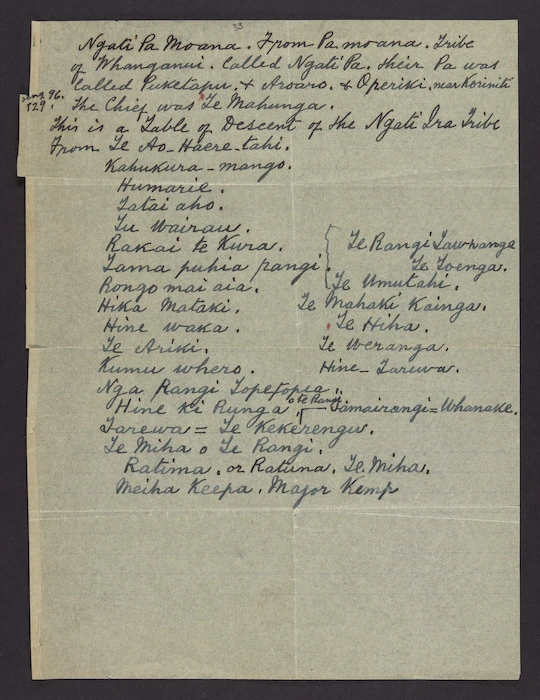 33
Ngati Pa Moana. From Pa moana. Tribe
of Whanganui. Called Ngati Pa. Their Pa was
called Puketapu. & Aroaro. & Operiki, near Koriniti
96.
129.
The Chief was Te Mahunga.
This is a Table of Descent of the Ngati Ira Tribe
From Te Ao-Haere-tahi.
Kahukura-mango.
Humarie.
Tatai aho.
Tu Wairau.
Rakai te Kura. { Te Rangi Tawhanga
Tama puhia rangi. Te Toenga.
Rongo mai aia. Te Umutahi.
Hika Mataki. Te Mahaki Kainga.
Hine waka. Te Hiha.
Te Ariki. Te Weranga.
Kumu whero. Hine-Tarewa.
Nga Rangi Topetopea.
Hine Ki Runga o te Rangi Tamairangi = Whanake.
Tarewa = Te Kekerengu.
Te Miha o Te Rangi.
Ratima. or Ratuna. Te Miha.
Meiha Keepa. Major Kemp